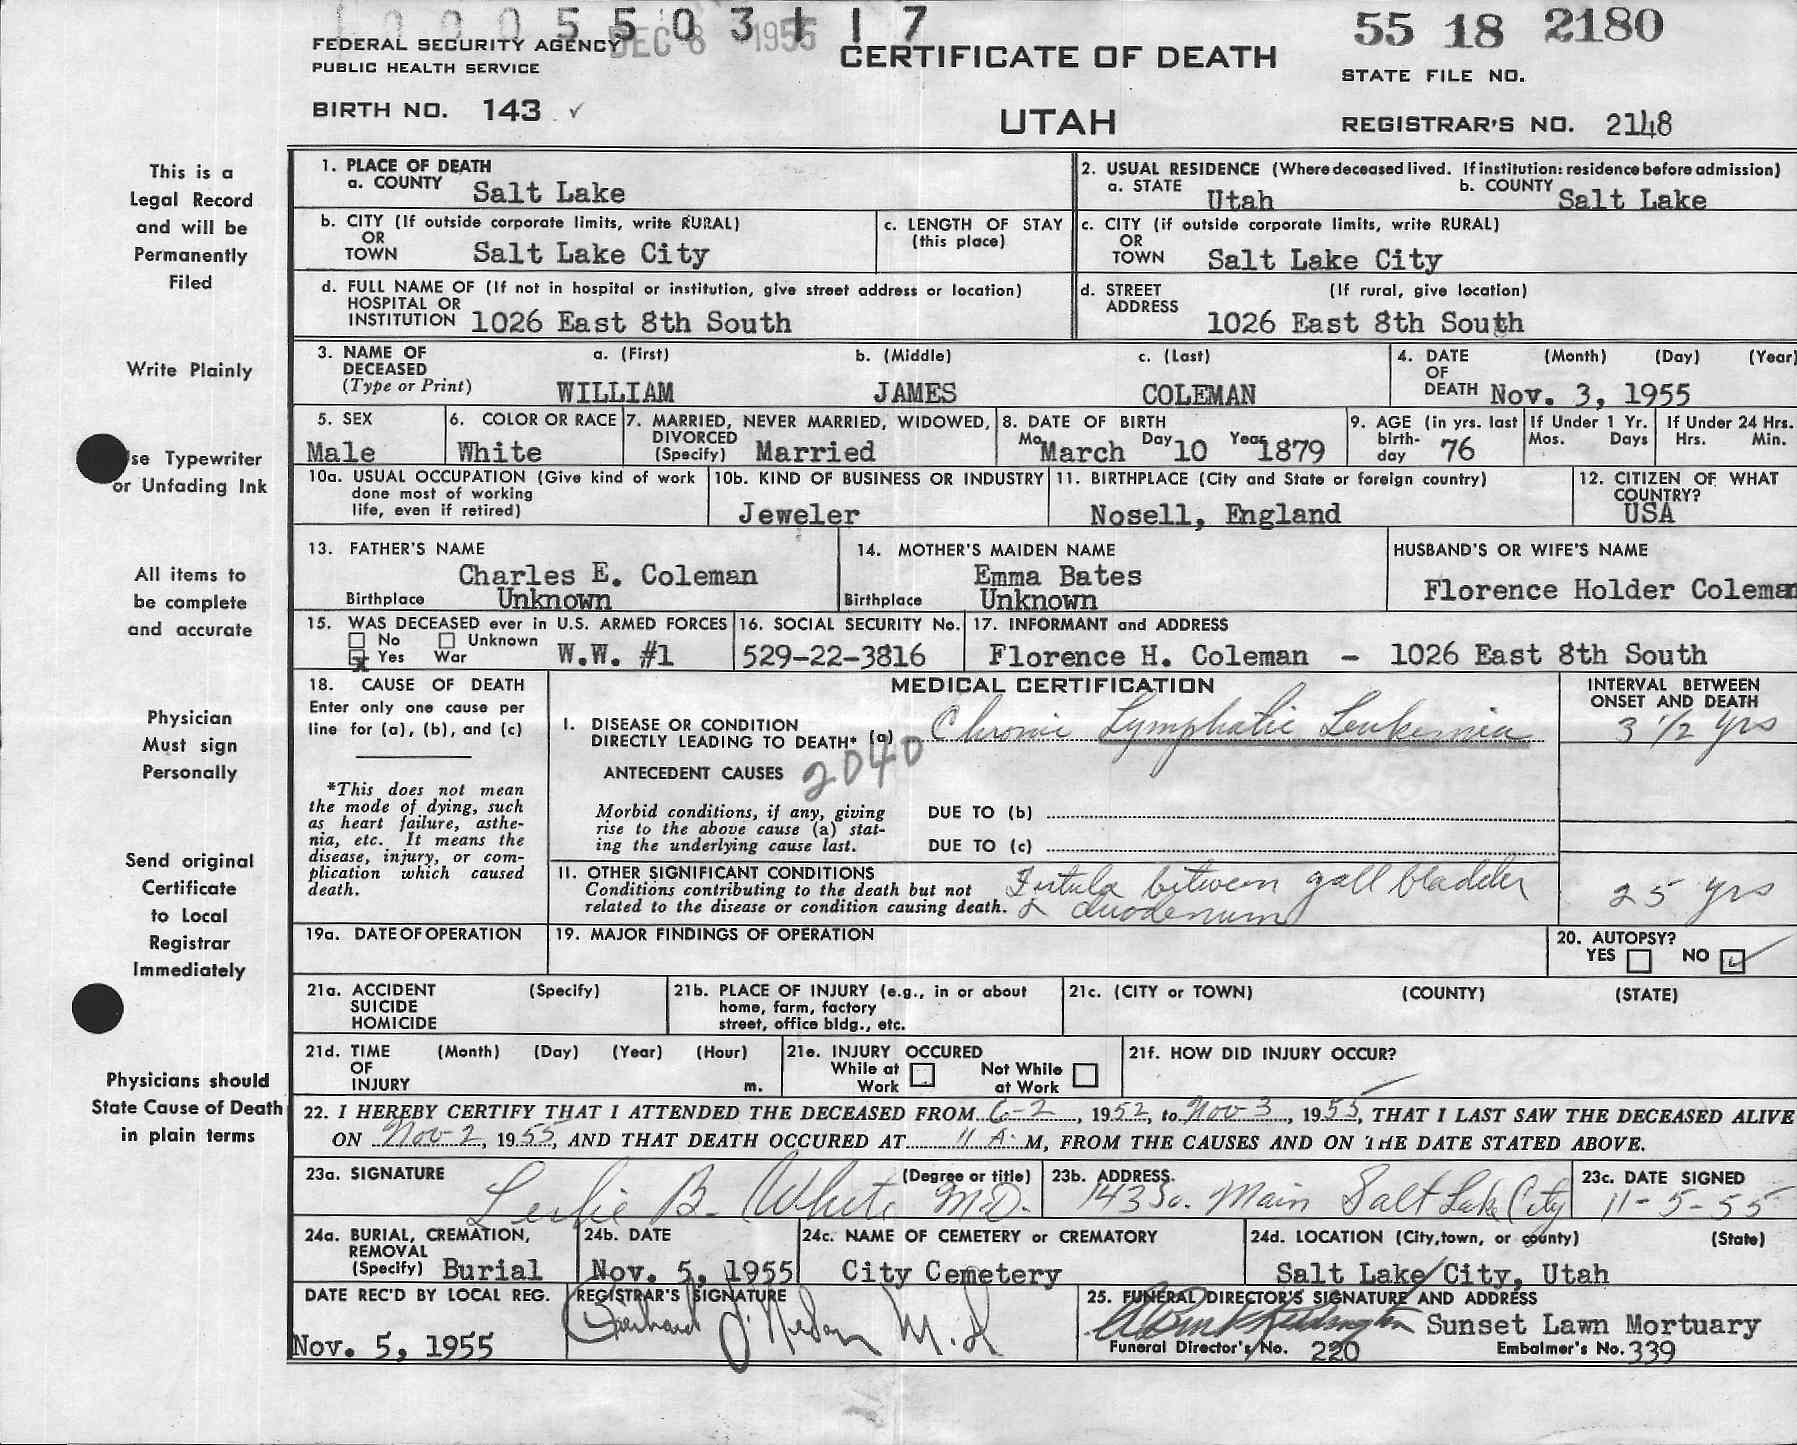 1 0 0 0 5 5 0 3 1 1 7
DEC 8 1955
55 18 2180
FEDERAL SECURITY AGENCY
PUBLIC HEALTH SERVICE
CERTIFICATE OF DEATH
STATE FILE NO.
BIRTH NO. 143 ✓
UTAH
REGISTRAR'S NO. 2148
This is a
Legal Record
and will be
Permanently
Filed
Write Plainly
se Typewriter
or Unfading Ink
All items to
be complete
and accurate
Physician
Must sign
Personally
Send original
Certificate
to Local
Registrar
Immediately
Physicians should
State Cause of Death
in plain terms
1. PLACE OF DEATH
a. COUNTY Salt Lake
2. USUAL RESIDENCE (Where deceased lived. If institution: residence before admission)
a. STATE Utah b. COUNTY Salt Lake
b. CITY (If outside corporate limits, write RURAL)
OR
TOWN Salt Lake City
c. LENGTH OF STAY
(this place)
c. CITY (if outside corporate limits, write RURAL)
OR
TOWN Salt Lake City
d. FULL NAME OF (If not in hospital or institution, give street address or location)
HOSPITAL OR
INSTITUTION 1026 East 8th South
d. STREET (If rural, give location)
ADDRESS
1026 East 8th South
3. NAME OF a. (First) b. (Middle) c. (Last)
DECEASED
(Type or Print) WILLIAM JAMES COLEMAN
4. DATE (Month) (Day) (Year)
OF
DEATH Nov. 3, 1955
5. SEX
Male
6. COLOR OR RACE
White
7. MARRIED, NEVER MARRIED, WIDOWED,
DIVORCED
(Specify) Married
8. DATE OF BIRTH
Mo. March Day 10 Year 1879
9. AGE (in yrs. last
birth-
day 76
If Under 1 Yr.
Mos. Days
If Under 24 Hrs.
Hrs. Min.
10a. USUAL OCCUPATION (Give kind of work
done most of working
life, even if retired)
10b. KIND OF BUSINESS OR INDUSTRY
Jeweler
11. BIRTHPLACE (City and State or foreign country)
Nosell, England
12. CITIZEN OF WHAT
COUNTRY?
USA
13. FATHER'S NAME
Charles E. Coleman
Birthplace Unknown
14. MOTHER'S MAIDEN NAME
Emma Bates
Birthplace Unknown
HUSBAND'S OR WIFE'S NAME
Florence Holder Coleman
15. WAS DECEASED ever in U.S. ARMED FORCES
No Unknown
x Yes War W.W. #1
16. SOCIAL SECURITY No.
529-22-3816
17. INFORMANT and ADDRESS
Florence H. Coleman - 1026 East 8th South
18. CAUSE OF DEATH
Enter only one cause per
line for (a), (b), and (c)
*This does not mean
the mode of dying, such
as heart failure, asthe-
nia, etc. It means the
disease, injury, or com-
plication which caused
death.
MEDICAL CERTIFICATION
INTERVAL BETWEEN
ONSET AND DEATH
I. DISEASE OR CONDITION
DIRECTLY LEADING TO DEATH* (a) Chronic Lymphatic Leukemia 3 1/2 yrs
ANTECEDENT CAUSES 2040
Morbid conditions, if any, giving
rise to the above cause (a) stat-
ing the underlying cause last.
DUE TO (b)
DUE TO (c)
11. OTHER SIGNIFICANT CONDITIONS
Conditions contributing to the death but not
related to the disease or condition causing death.
Fistula between gall bladder
& duodenum
25 yrs
19a. DATE OF OPERATION
19. MAJOR FINDINGS OF OPERATION
20. AUTOPSY?
YES NO ✓
21a. ACCIDENT (Specify)
SUICIDE
HOMICIDE
21b. PLACE OF INJURY (e.g., in or about
home, farm, factory
street, office bldg., etc.
21c. (CITY or TOWN) (COUNTY) (STATE)
21d. TIME (Month) (Day) (Year) (Hour)
OF
INJURY m.
21e. INJURY OCCURED
While at Not While
Work at Work
21f. HOW DID INJURY OCCUR?
22. I HEREBY CERTIFY THAT I ATTENDED THE DECEASED FROM 6-2, 1952, to Nov 3, 1955, THAT I LAST SAW THE DECEASED ALIVE
ON Nov-2, 1955, AND THAT DEATH OCCURED AT 11 A. M, FROM THE CAUSES AND ON THE DATE STATED ABOVE.
23a. SIGNATURE (Degree or title)
Leslie B. White M.D.
23b. ADDRESS
143 So. Main Salt Lake City
23c. DATE SIGNED
11-5-55
24a. BURIAL, CREMATION,
REMOVAL
(Specify) Burial
24b. DATE
Nov. 5, 1955
24c. NAME OF CEMETERY or CREMATORY
City Cemetery
24d. LOCATION (City, town, or county) (State)
Salt Lake City, Utah
DATE REC'D BY LOCAL REG.
Nov. 5, 1955
REGISTRAR'S SIGNATURE
M.D
25. FUNERAL DIRECTOR'S SIGNATURE AND ADDRESS
Sunset Lawn Mortuary
Funeral Director's No. 220 Embalmer's No. 339